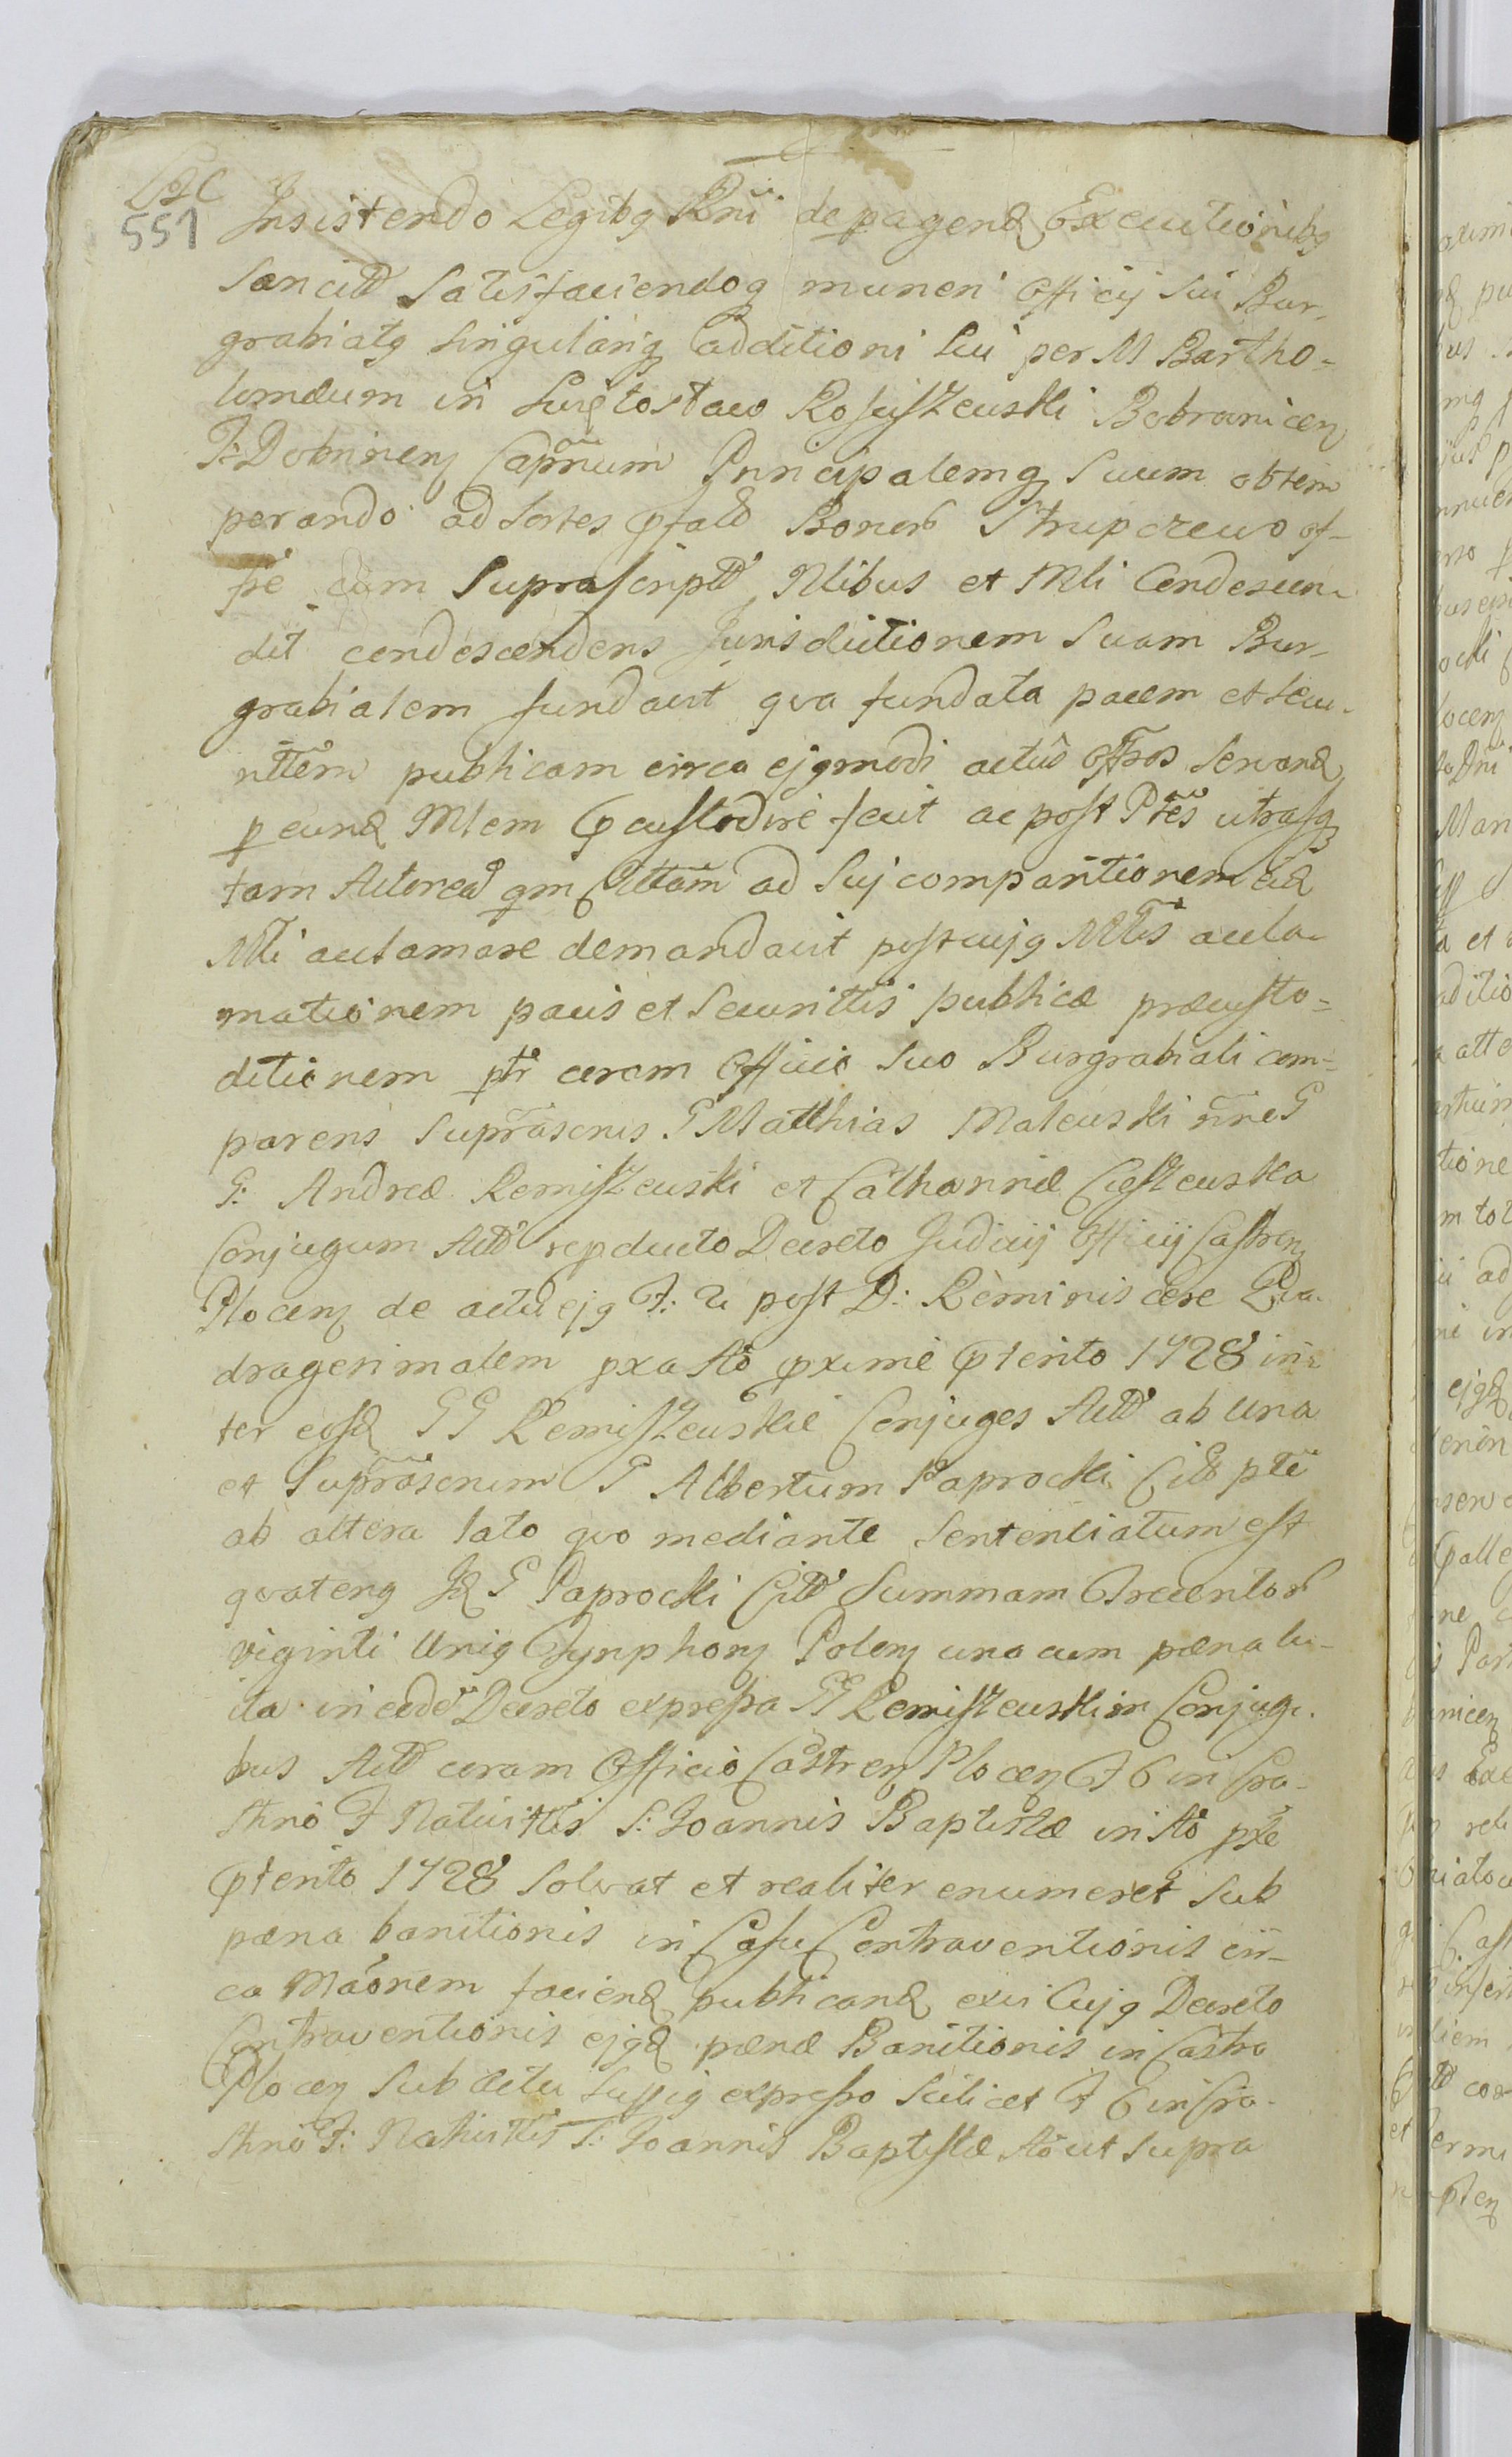 551
Insistendo Legibq Rni de pagend Executionibq
Sancitt Satisfaciendoq muneri Officij Sui Bur-
grabiatq singulariq additioni Sui per M Bartho-
lomæum in Swiętosław Rosciszewski Bobrownicen
T: Dobrinen Capnum Principalemq Suum obtem
perando ad Sortes pfatt Bonor Strupczewo of-
fse cum Suprascriptt Nlibus et Mli Condescen-
dit condescendens Jurisdictionem Suam Bur-
grabialem fundavit qva fundata pacem et secu-
rittem publicam circa ejqmodi actus offsos servand
p eund Mlem pcustodire fecit ac post Ptes utrasq
tam Actoreã qm Cittam ad Sui comparitionem eid
Mli acclamare demandavit post cujq Mlis accla-
mationem pacis et Securittis publicæ præcusto-
ditionem ptr coram Officio Suo Burgrabiali com-
parens Suprascris G Matthias Makowski nne G
G: Andreæ Remiszewski et Catharinæ Cieszewska
Conjugum Actt repducto Decreto Judicij Officij Castren
Plocen de actu ejq F: 2 post D: Reminiscere Qva-
dragesimalem pxa Ao pxime pterito 1728 in-
ter eosd GG Remiszewskie Conjuges Actt ab una
et Suprascrum G Albertum Paprocki Citt pte
ab altera lato qvo mediante Sententiatum est
qvatenq Jd G Paprocki Citt Summam Trecentor
viginti Uniq Tynphon Polen una cum pæna lu-
ita in eode Decreto expressa GG Remiszewskim Conjugi-
bus Actt coram Officio Castren Plocen F 6 in Cra-
stino F Nativittis S: Joannis Baptistæ in Ao pxe
pterito 1728 Solvat et realiter enumeret Sub
pæna banitionis in Casu Contraventionis cir-
ca Maonem faciend publicand exvi Cujq Decreto
Contraventionis ejqd pænæ Banitionis in Castro
Plocen Sub actu Supiq expresso Scilicet F 6 in Cra-
stino F: Nativittis S: Joannis Baptistæ Ao ut Supra